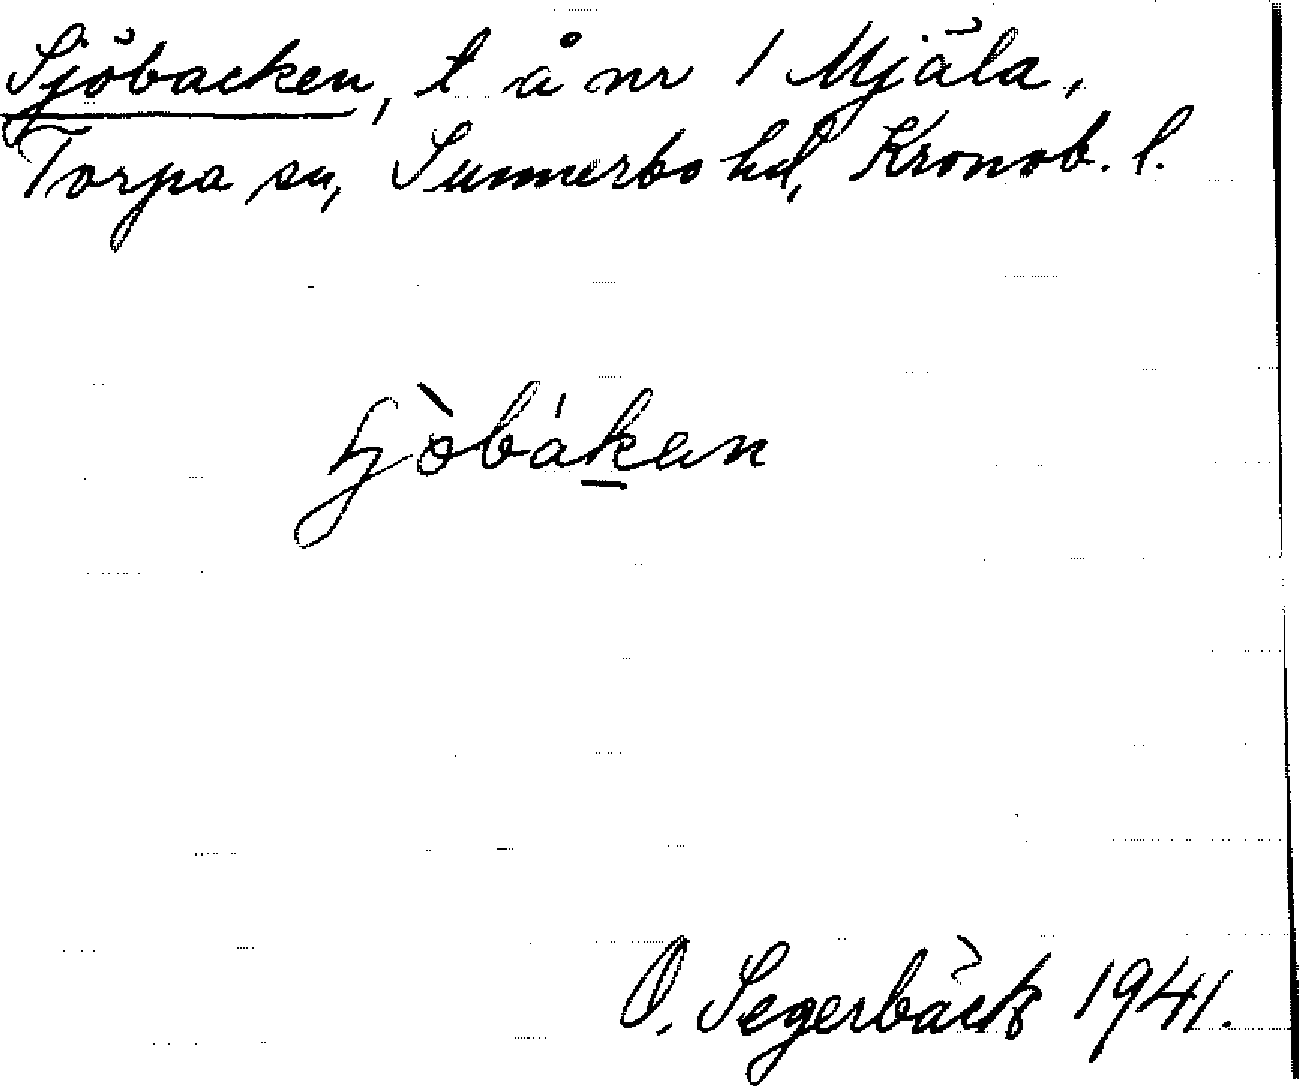 Sjöbacken, t å nr 1 Mjäla,
Torpa sn, Sunnerbo hd, Kronob. l.
ɧòbákan
O. Segerbäck 1941.